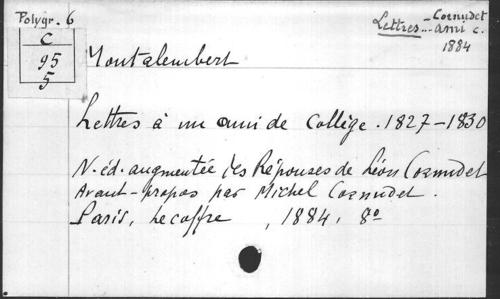 Polygr. 6
C
95
5
Lettres - Cornudet
ami c.
1884
Montalembert
Lettres à un ami de collège. 1827-1830
N. éd. augmentée des Réponses de Léon Cornudet
Avant-propos par Michel Cornudet.
Paris, Lecoffre, 1884, 8º